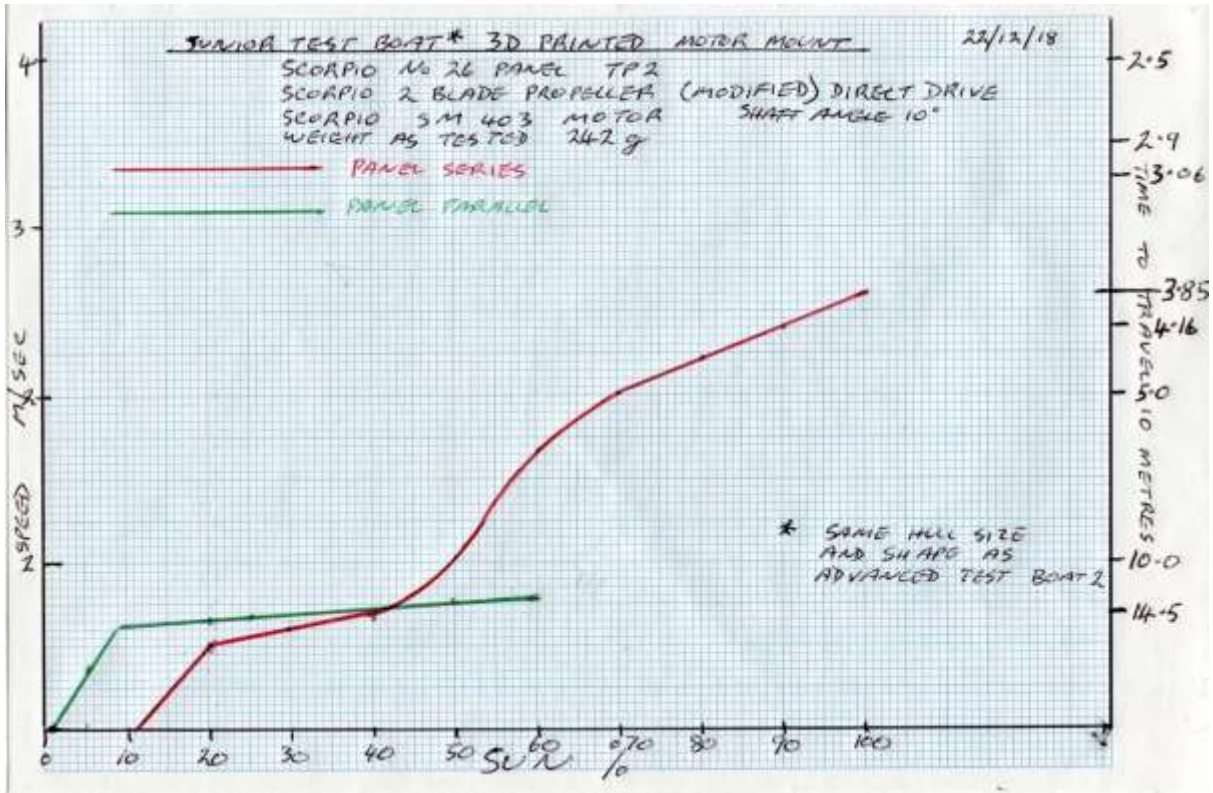 JUNIOR TEST BOAT* 3D PRINTED MOTOR MOUNT
22/12/18
SCORPIO No 26 PANEL TP2
SCORPIO 2 BLADE PROPELLER (MODIFIED) DIRECT DRIVE
SCORPIO SM 403 MOTOR SHAFT ANGLE 10°
WEIGHT AS TESTED 242 g
PANEL SERIES
PANEL PARALLEL
4
3
2
2
SPEED M/SEC
2.5
2.9
3.06
3.85
4.16
5.0
10.0
14.5
TIME TO TRAVEL 10 METRES
* SAME HULL SIZE
AND SHAPE AS
ADVANCED TEST BOAT 2
0 10 20 30 40 50 60 70 80 90 100
SUN %